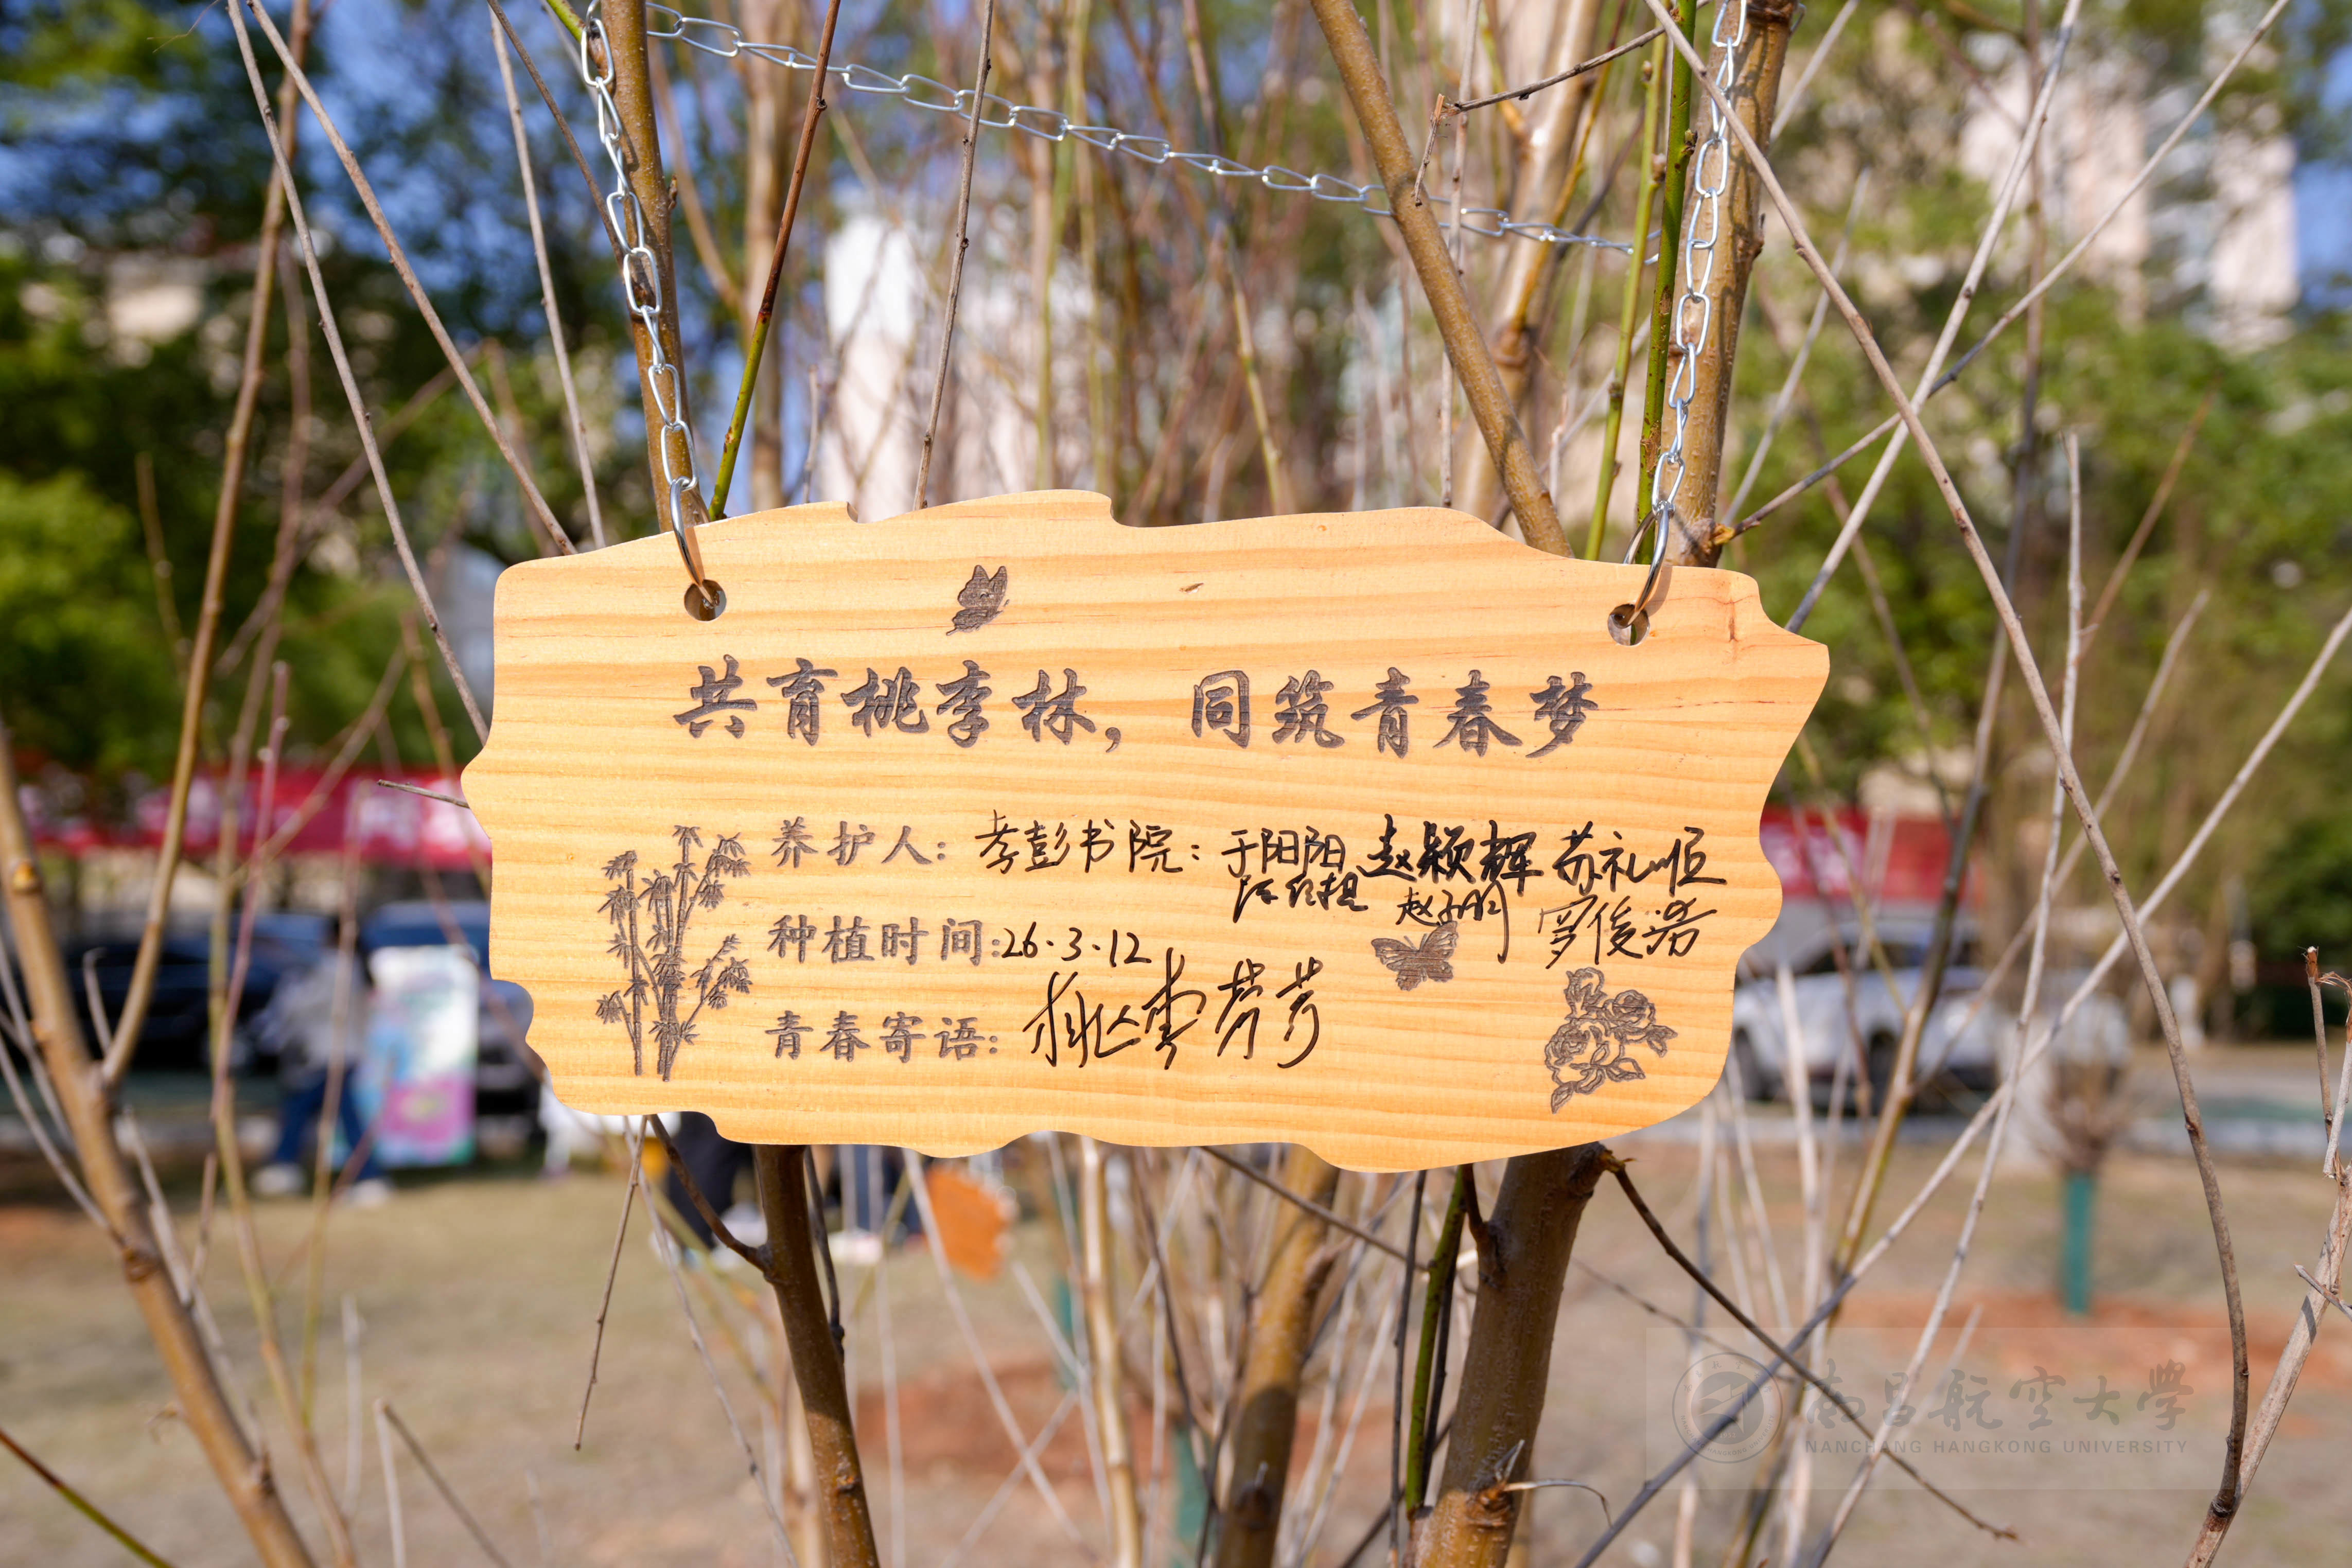 共育桃李林，同筑青春梦
养护人：孝彭书院：于阳阳 赵颖辉 苏礼顺
赵子明 罗俊
种植时间：26.3.12
青春寄语：桃李芳芳
南昌航空大学
NANCHANG HANGKONG UNIVERSITY